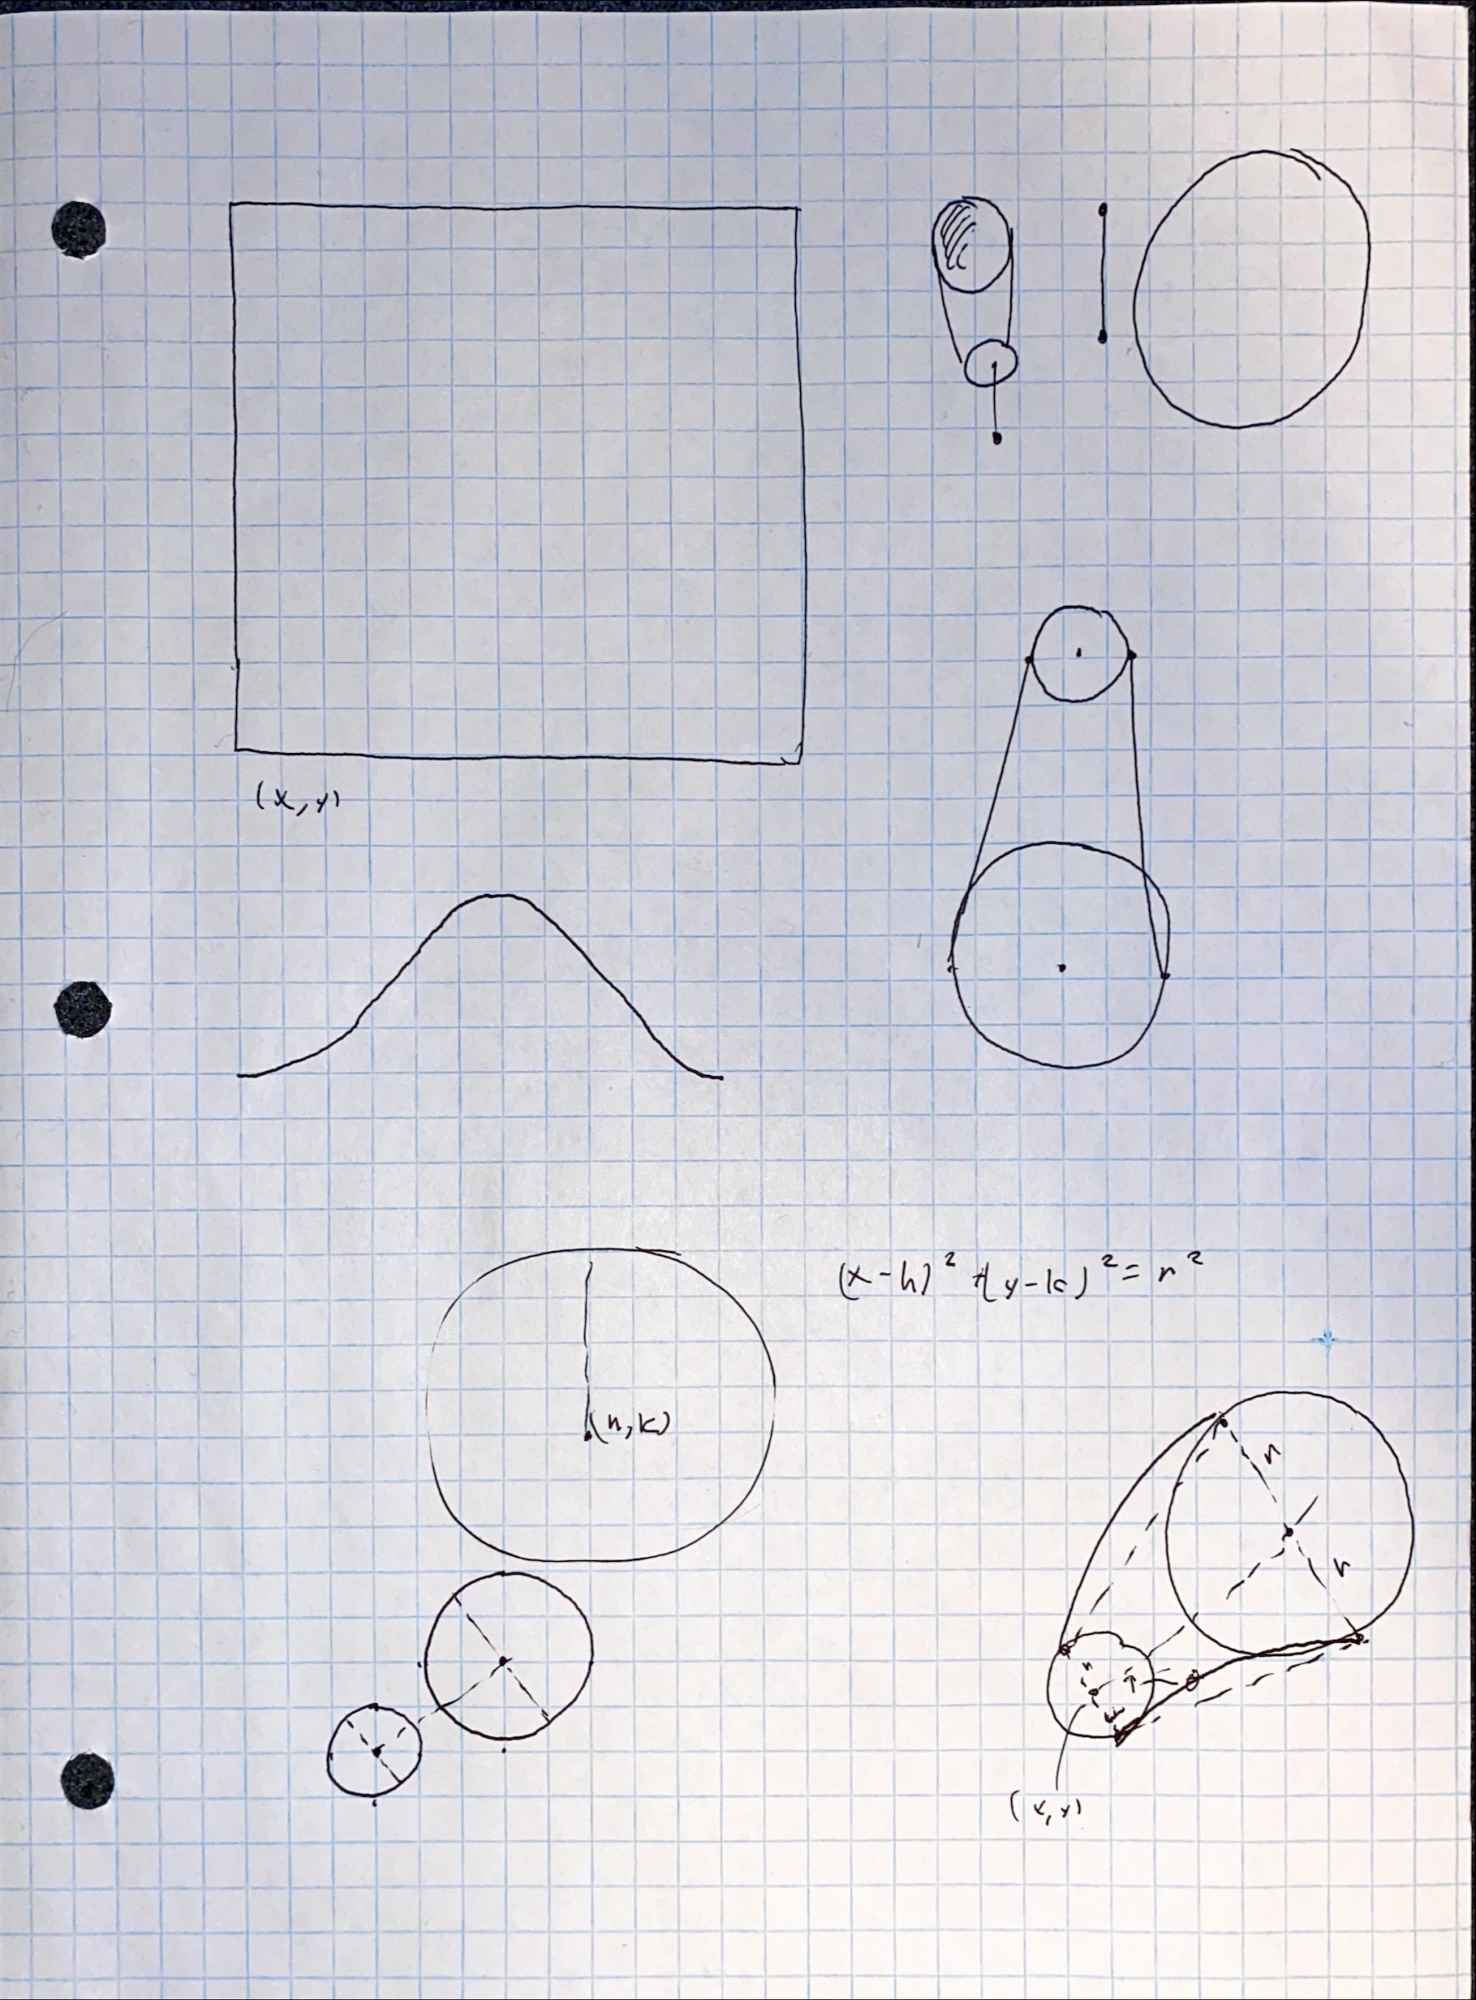 (x,y)
(x-h)² + (y-k)² = r²
(h,k)
r
r
r
(x,y)